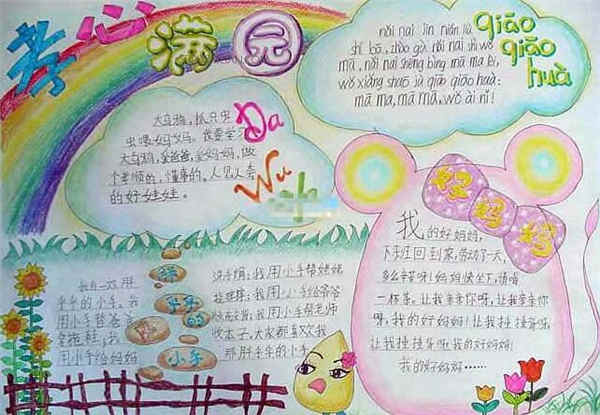 孝心满园
qiāo
qiāo
huà
nǎi nai jīn nián liù
shí bā,
mā, nǎi nai shēng bìng mā ma
wǒ xiǎng shuō jù qiāo qiāo huà:
mā ma, mā mā, wǒ ài nǐ!
大乌鸦,抓只虫
虫喂妈妈。我要学
大乌鸦,爱爸爸,爱妈妈,做
个孝顺的,懂事的。人见人夸
的好娃娃。
Da
Wu
好妈妈
我的好妈妈,
下班回到家,劳动了一天,
多么辛苦呀!妈妈快坐下,请喝
一杯茶,让我亲亲你呀,让我亲亲你
呀,我的好妈妈!让我捶捶背呀
让我捶捶背呀我的好妈妈!
我的好妈妈……
我有一双胖
乎乎的小手,我
用小手替爸爸
拿拖鞋;我
用小手给妈妈
胖
乎乎
的
小手
洗手绢;我用小手帮姥姥
挠痒痒;我用小手给爷爷
我用小手帮老师
收本子,大家都喜欢我
那胖乎乎的小手